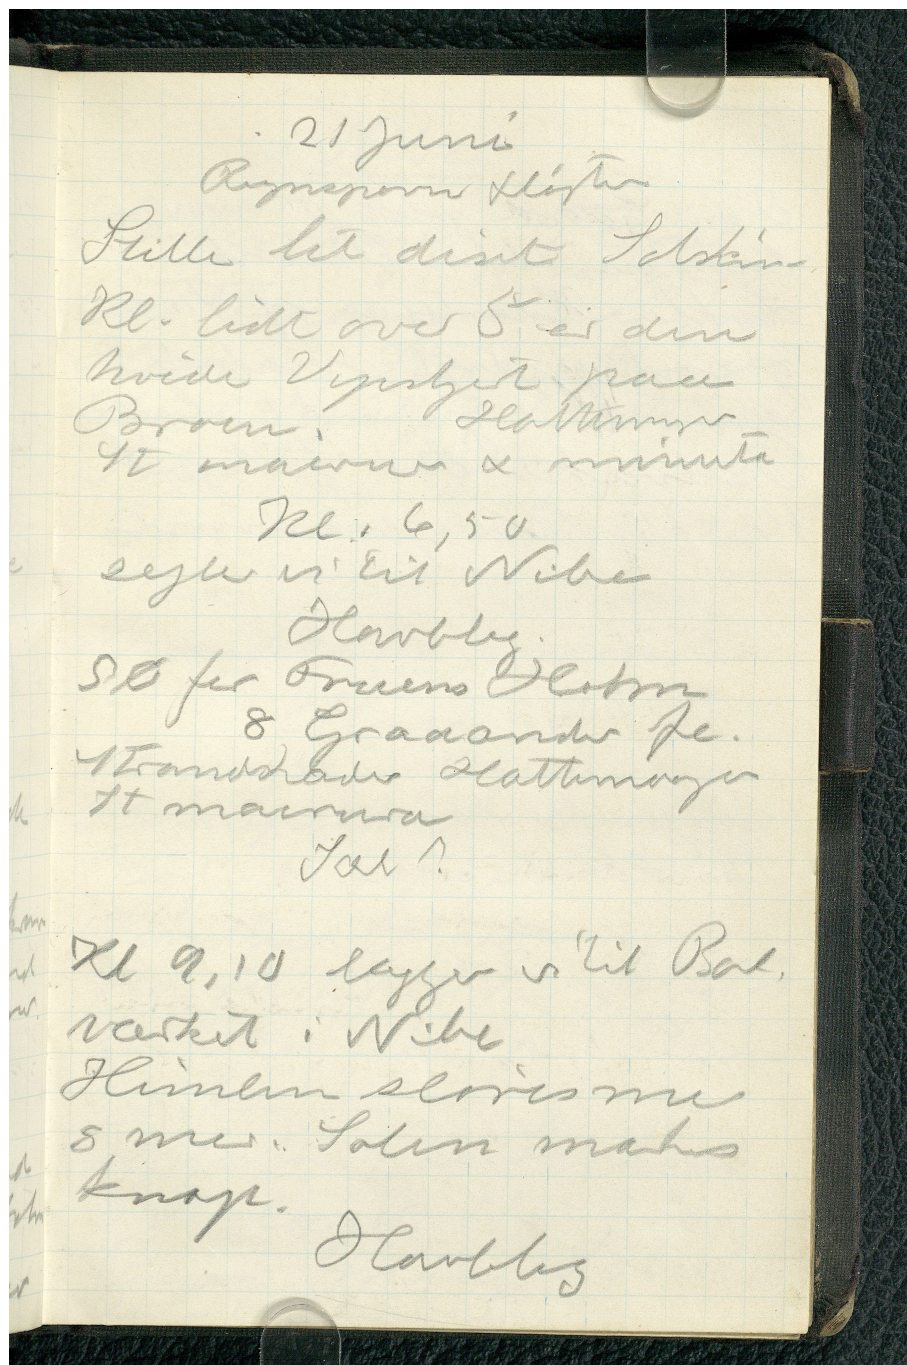 21 Juni
Regnspover Kløfter
Stille let diset Solskin
Kl. lidt over 5 er den
hvide Vipstjert paa
Broen. Hættemaage
St macrura & minuta
Kl. 6,50
sejler vi til Nibe
Havblig.
SØ for Fruens Holm
8 Graaander fl.
Strandskader Hættemaager
St macrura
Sæl?
Kl 9,10 lægger vi til Bol.
værket i Nibe
Himlen sløres me
& mer. Solen mærkes
knap.
Havblig